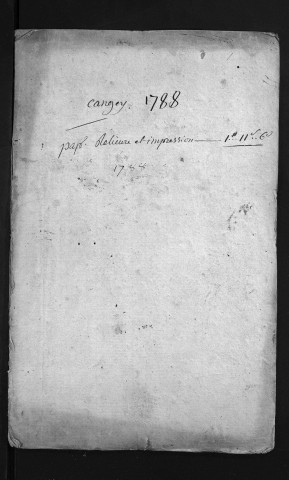 Cangey. 1788
pap.r Relieure et impression — 1.tt 11.s 6.d
1788